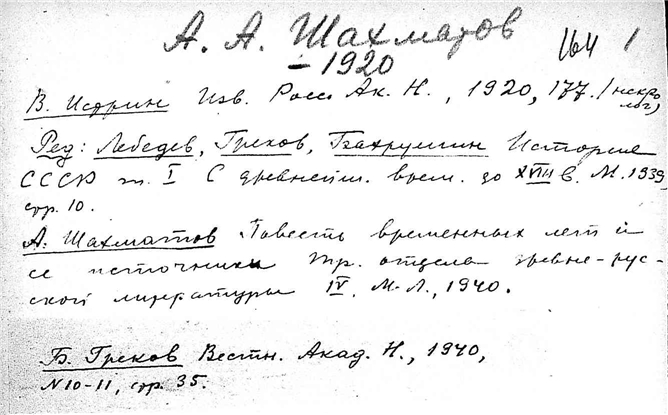 А. А. Шахматов 164 1
– 1920
В. Истрин Изв. Росс Ак. Н., 1920, 177. /некро
лог)
Ред: Лебедев, Греков, Бахрушин История
СССР т. I С древнейш. врем. до XVII в. М. 1939,
стр. 10.
А. Шахматов Повесть временных лет и
ее источники Тр. отдела древне-рус-
ской литературы IV, М-Л., 1940.
Б. Греков Вестн. Акад. Н., 1940,
N 10-11, стр. 35.